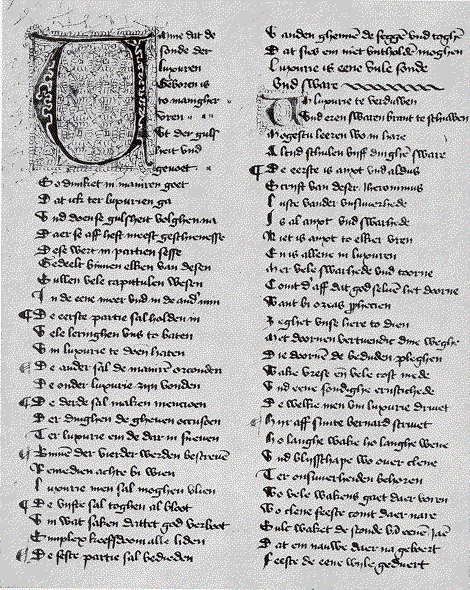 Anne dat de
sonde der
luxuren
Geboren is
to manigher
vren
Vt der guls
heit vnd
genoet
So dunket in maniren goet
Dat ik ter luxurien ga
Vnd doense gulsheit volghen na
Daer se aff heft meest gesthenesse
Dese wert in partien sesse
Gedeelt binnen elken van desen
Sullen vele capittulen wesen
In de eene meer vnd in de and min
De eerste partie sal holden in
Vele leringhen vns to baten
Vm luxurie to doen haten
De ander sal de manire orconden
De onder luxurie zijn vonden
De derde sal maken mencioen
Der dinghen de gheven occusoen
Ter luxurie em de dar in sneven
Binnē der vierder werden bestrevē
Remedien achte bi wien
Luxurie men sal moghen vlien
De vijfte sal toghen al bloet
Vm wat saken dattet god verboet
Simplex keefsdom alle liden
De seste partie sal bedieden
Vanden ghennē de segghē vnd taghē
Dat sies em niet vntholdē moghen
Luxurie is eene vule sonde
Vnd sware
Um luxurie te verduwen
Vnd eren swaren brant te schuwen
Mogestu leeren wo in hare
Altid schulen viff dinghē sware
De eerste is anxt vnd aldus
Scrift van deser Jheronimus
Luste vander vnsuverhede
Is al anxt vnd swarhede
Niet is anxt to ellker vren
En is allene in luxuren
Mer vele swarhede vnd toorne
Comt d'aff dat god seluē het doorne
Want bi ozeas pphecien
Seghet vnse here to dien
Met doornen vertuendt dine weghe
Die doornē de beduden pleghen
Wake vrest eñ vele cost mede
Vnd eene sondighe ernstichede
De welke men vm luxurie druet
Hiir aff sunte bernard scruet
Ho langhe wake ho langhe wene
Vnd blijsthape wo over clene
Ter onsuverheiden behoren
Wo vele wakens gaet daer voren
Wo clene feeste comt daer nare
Sulc waket de stonde vā eenē jaē
Dat em nauwe daer na geboert
Feeste de eene wyle geduert